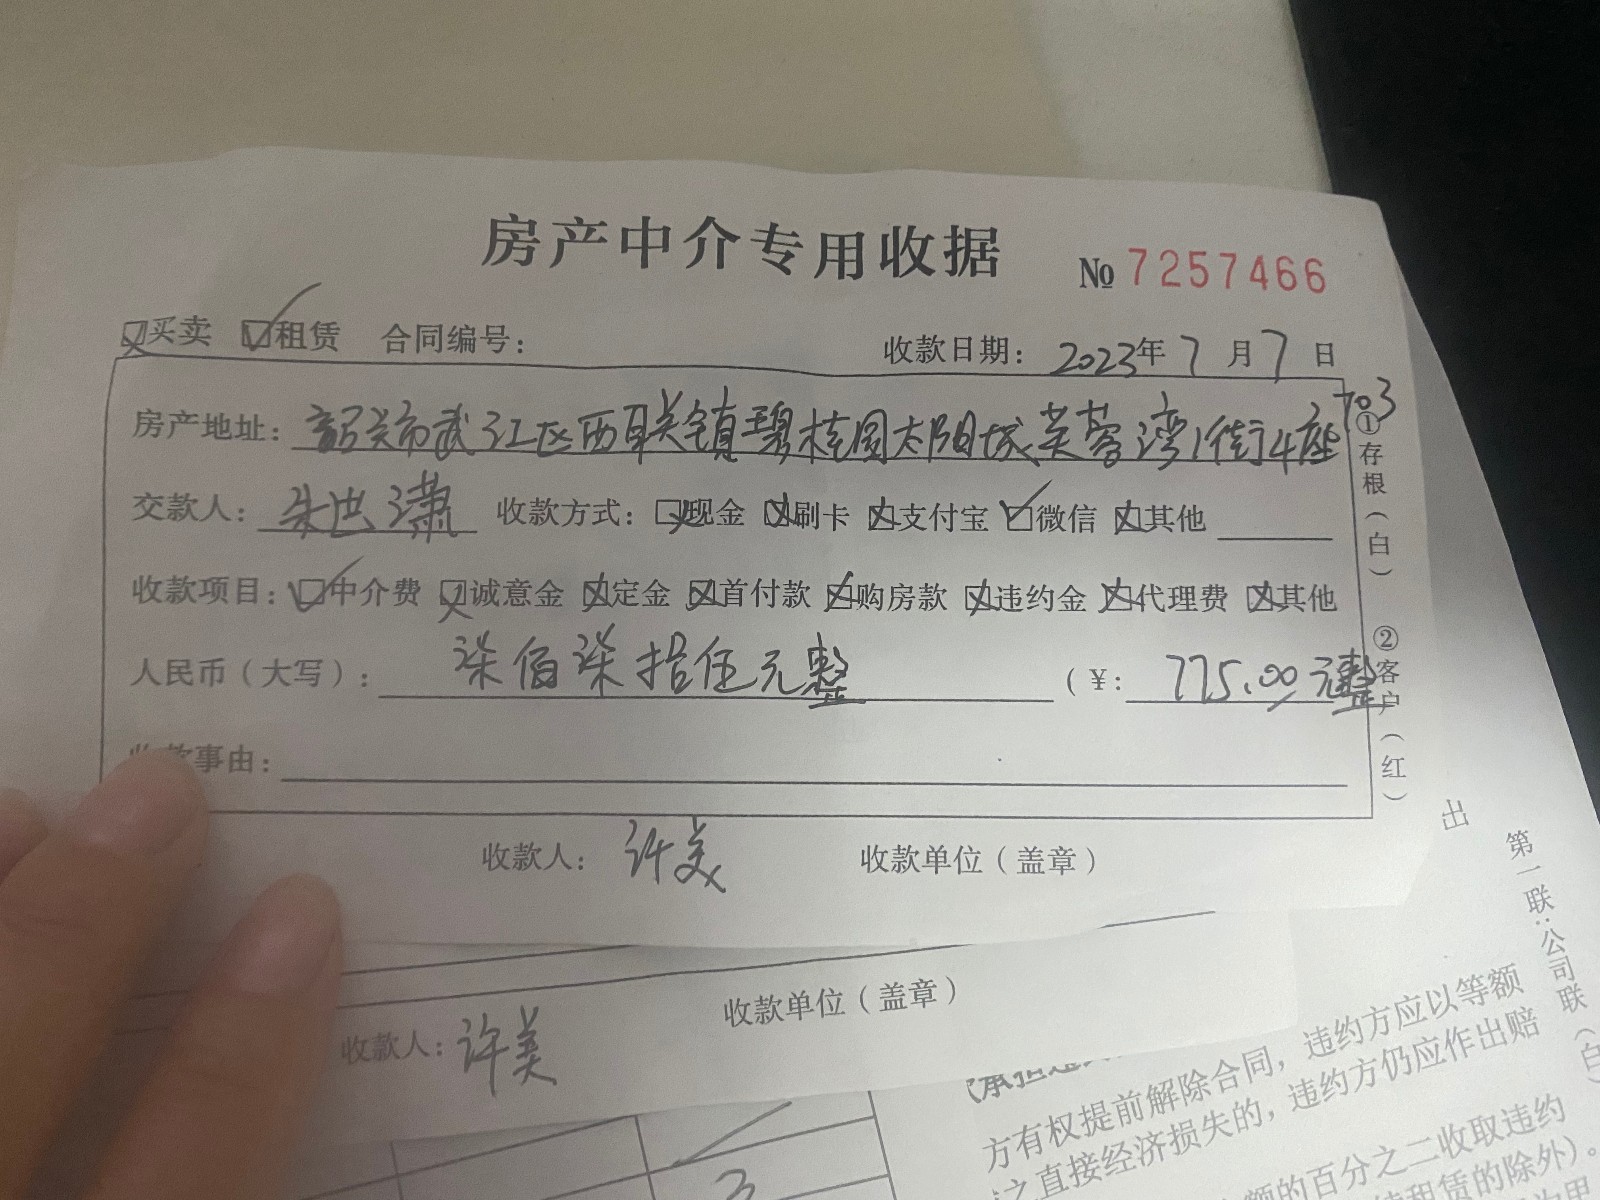 房产中介专用收据
№ 7257466
买卖 租赁 合同编号： 收款日期：2023年7月7日
房产地址：韶关市武江区西联镇碧桂园太阳城芙蓉湾1街4座703
交款人：朱洪潇 收款方式：现金 刷卡 支付宝 微信 其他
收款项目：中介费 诚意金 定金 首付款 购房款 违约金 代理费 其他
人民币（大写）：柒佰柒拾伍元整 （¥：775.00元整
收款事由：
收款人：许美 收款单位（盖章）
①存根（白）
②客户（红）
收款人：许美 收款单位（盖章）
出
第一联：公司联（白）
方有权提前解除合同，违约方应以等额
之直接经济损失的，违约方仍应作出赔
额的百分之二收取违约
租赁的除外）。
3